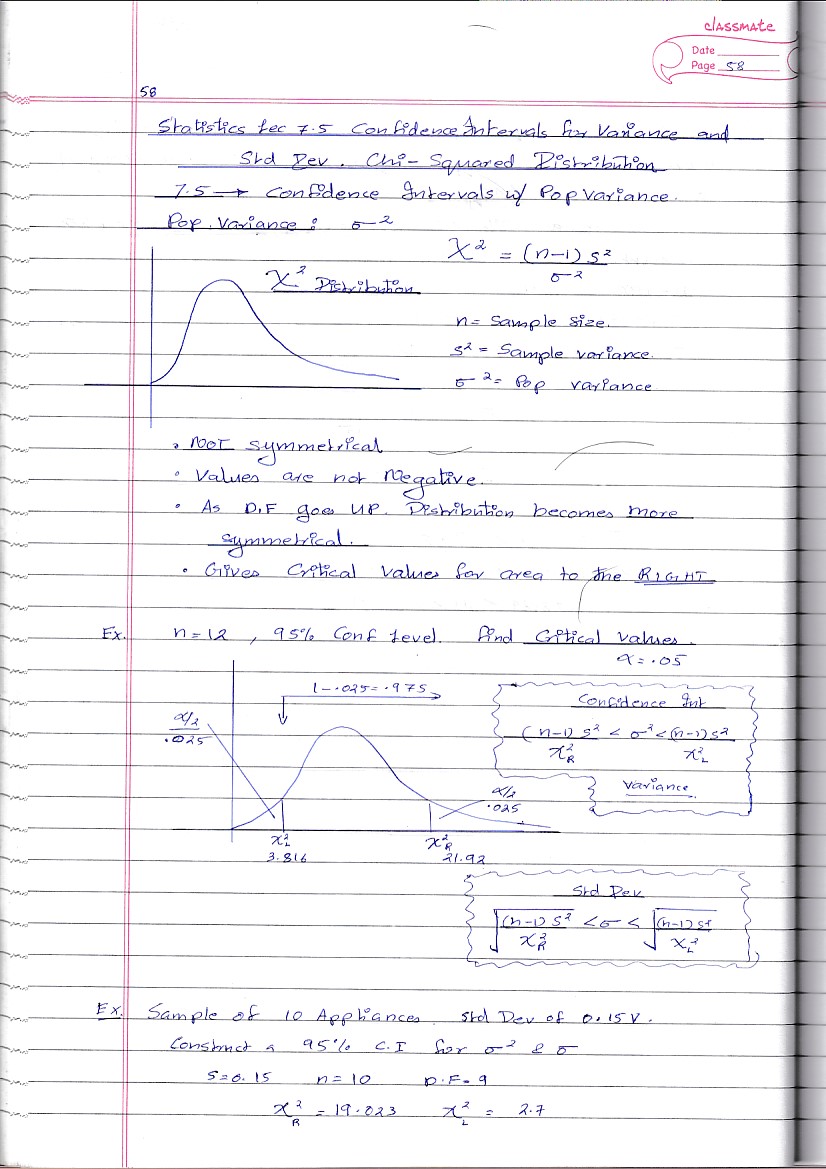 classmate
Date
Page 58
58
Statistics Lec 7.5 Confidence Intervals for Variance and
Std Dev. Chi-Squared Distribution
7.5 → Confidence Intervals w/ Pop Variance.
Pop. Variance: σ²
χ² = (n-1) s² / σ²
χ² Distribution
n = Sample Size.
s² = Sample variance.
σ² = Pop variance
• Not symmetrical
• Values are not Negative.
• As D.F goes UP. Distribution becomes more
symmetrical.
• Gives Critical Values for area to the RIGHT
Ex. n=12, 95% Conf Level. Find Critical Values.
α=.05
1-.025=.975
α/2
.025
Confidence Int
(n-1) s² / χ²R < σ² < (n-1) s² / χ²L
Variance.
α/2
.025
χ²L
3.816
χ²R
21.92
Std Dev
√((n-1) s² / χ²R) < σ < √((n-1) s² / χ²L)
Ex. Sample of 10 Appliances. Std Dev of 0.15V.
Construct a 95% C.I for σ² & σ
s=0.15 n=10 D.F=9
χ²R = 19.023 χ²L = 2.7